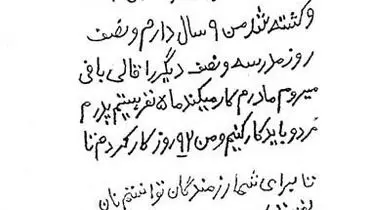 و کشته شد من ۹ سال دارم و نصف
روز مدرسه و نصف دیگر را قالی بافی
میروم مادرم کار میکند ما ۵ نفر هستیم پدرم
مرد و باید کار کنیم و من ۹۲ روز کار کردم تا
تا برای شما رزمندگان توانستم نان